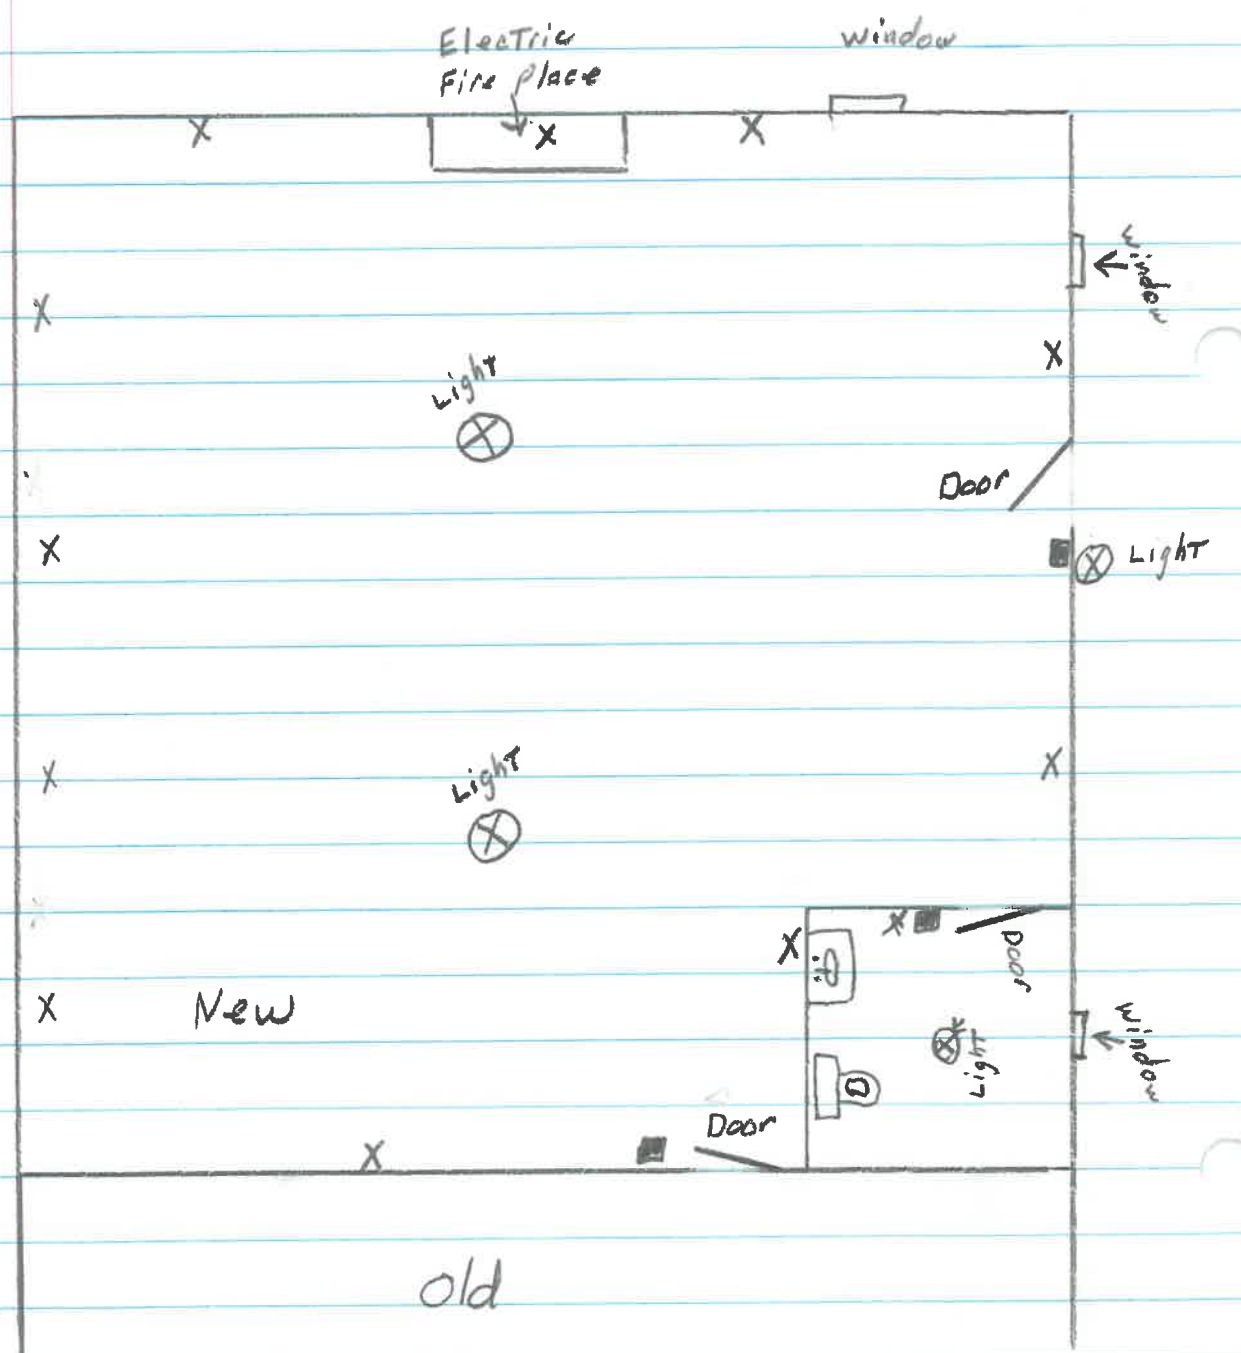 Electric
Fire place
window
X
X
X
window
X
X
Light
Door
X
Light
Light
X
X
X
X
Door
X
New
window
Light
Door
X
Old